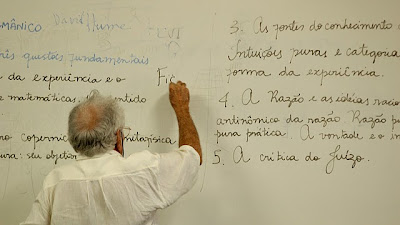 MÂNICO
David Hume
TEXT
rês questões fundamentais
da experiência e o
matemáticas.
Fis
no copernic
ura: seu objetivo
3. As fontes do conhecimento
Intuições puras e categoria
forma da experiência.
4. A Razão e as idéias racio
antinômico da razão. Razão p
pura prática. A vontade e o
5. A crítica do Juízo.